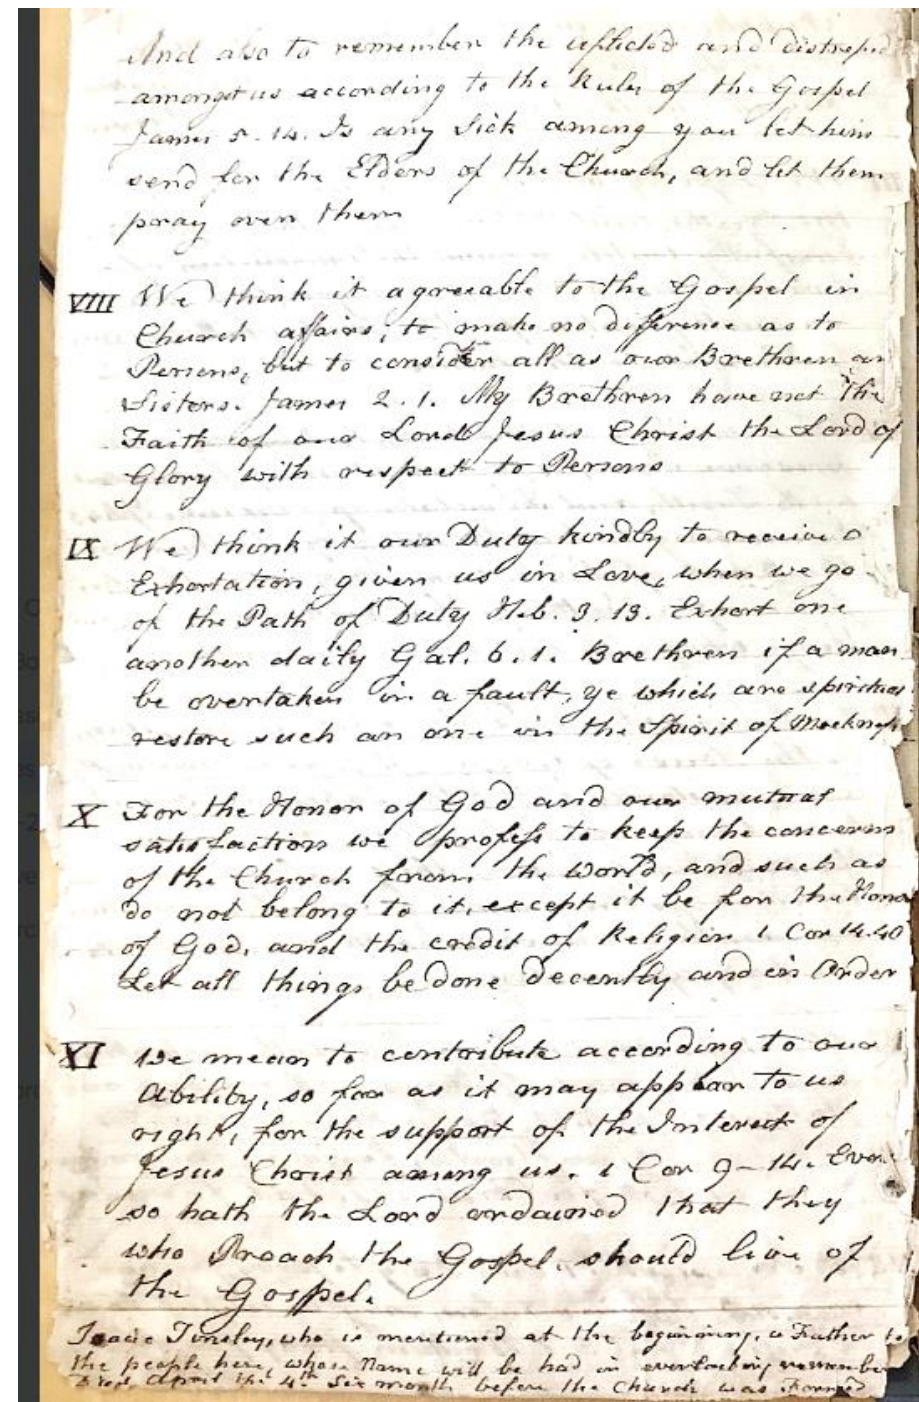 And also to remember the afflicted and distressed
amongst us according to the Rules of the Gospel
James 5. 14. Is any Sick among you let him
send for the Elders of the Church, and let them
pray over them
VIII We think it agreeable to the Gospel in
Church affairs, to make no difference as to
Persons, but to consider all as our Brethren an
Sisters. James 2. 1. My Brethren have not the
Faith of our Lord Jesus Christ the Lord of
Glory with respect to Persons
IX We think it our Duty kindly to receive a
Exhortation, given us in Love, when we go
of the Path of Duty Heb. 3. 13. Exhort one
another daily Gal. 6. 1. Brethren if a man
be overtaken in a fault, ye which are spiritual
restore such an one in the Spirit of Meekness
X For the Honor of God and our mutual
satisfaction we profess to keep the concerns
of the Church from the World, and such as
do not belong to it, except it be for the Honor
of God, and the credit of Religion 1 Cor 14.40
Let all things be done decently and in Order
XI We mean to contribute according to our
Ability, so far as it may appear to us
right, for the support of the Interest of
Jesus Christ among us. 1 Cor 9-14. Even
so hath the Lord ordained that they
who Preach the Gospel, should live of
the Gospel.
Isaac Tinsley, who is mentioned at the beginning, a Father to
the people here, whose Name will be had in everlasting remember
Died, April the 4th Six month before the Church was Formed